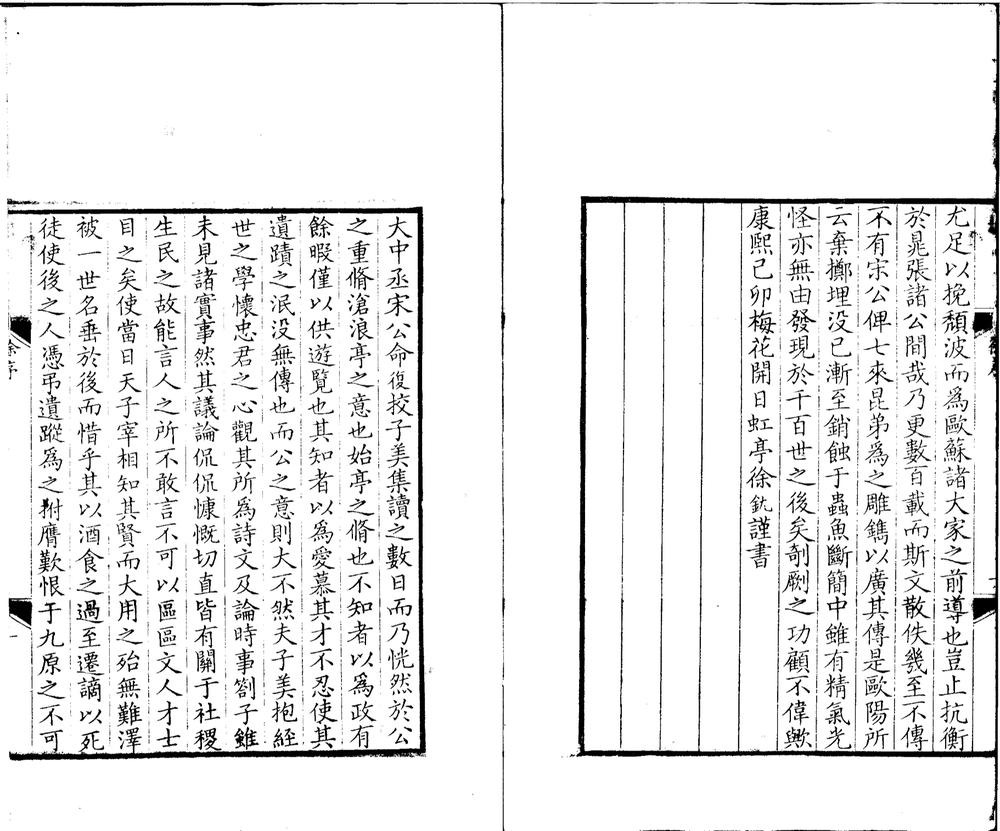 尤足以挽頹波而為歐蘇諸大家之前導也豈止抗衡
於晁張諸公間哉乃更數百載而斯文散佚幾至不傳
不有宋公俾七來昆弟為之雕鐫以廣其傳是歐陽所
云棄擲埋没已漸至銷蝕于蟲魚斷簡中雖有精氣光
怪亦無由發現於千百世之後矣剞劂之功顧不偉歟
康熙己卯梅花開日虹亭徐釚謹書
大中丞宋公命復挍子美集讀之數日而乃恍然於公
之重脩滄浪亭之意也始亭之脩也不知者以為政有
餘暇僅以供遊覽也其知者以為愛慕其才不忍使其
遺蹟之泯没無傳也而公之意則大不然夫子美抱經
世之學懷忠君之心觀其所為詩文及論時事劄子雖
未見諸實事然其議論侃侃慷慨切直皆有關于社稷
生民之故能言人之所不敢言不可以區區文人才士
目之矣使當日天子宰相知其賢而大用之殆無難澤
被一世名垂於後而惜乎其以酒食之過至遷謫以死
徒使後之人憑弔遺蹤為之拊膺歎恨于九原之不可
徐序
一